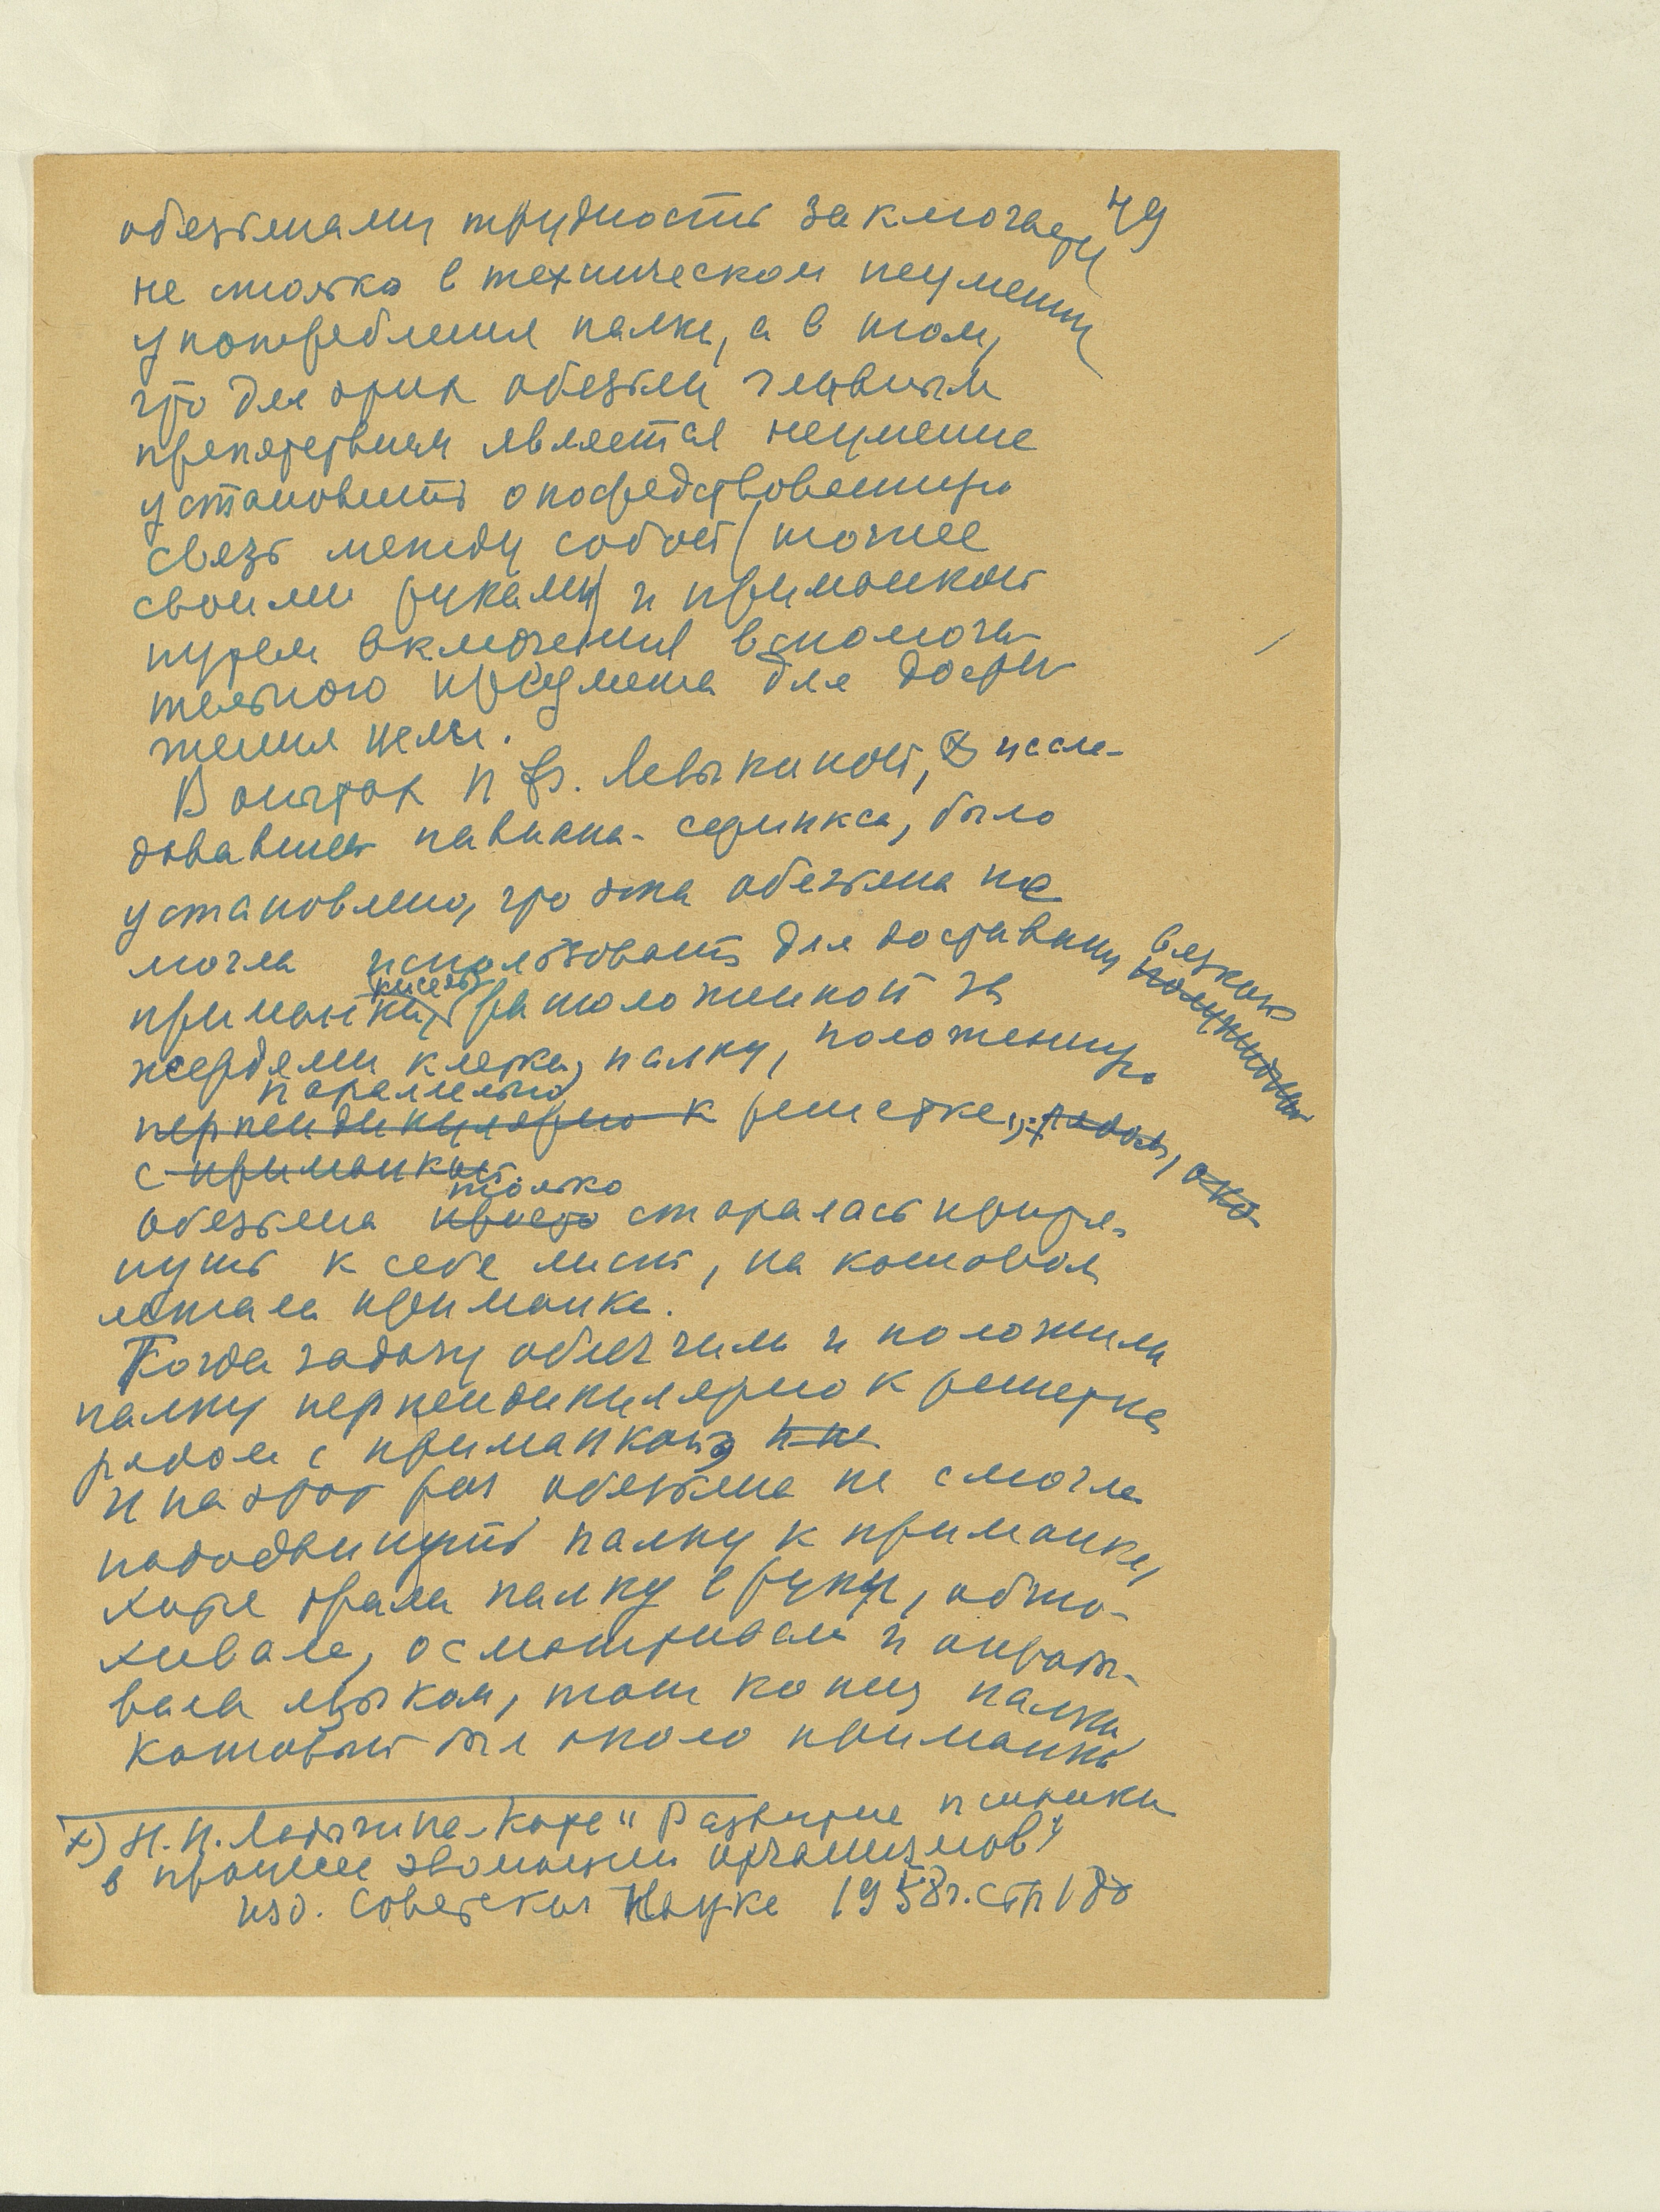 49
обезьянами трудность заключается
не только в техническом неумении
употребления палки, а в том,
что для этих обезьян главным
препятствием является неумение
установить опосредствованную
связь между собой (точнее
своими руками) и приманкой
путем включения вспомога-
тельного предмета для дости-
жения цели.
В опытах Н Ф. Левыкиной, x) иссле-
довавшей павиана-сфинкса, было
установлено, что эта обезьяна не
могла использовать для доставания вязкой
приманки, (кисель) расположенной за
жердями клетки, палку, положенную
параллельно
перпендикулярно к решетке, рядом, око
с приманкой.
только
Обезьяна просто старалась притя-
нуть к себе лист, на котором
лежала приманка.
Когда задачу облегчили и положили
палку перпендикулярно к решетке
рядом с приманкой, и не
и на этот раз обезьяна не смогла
пододвинуть палку к приманке,
хотя брала палку в руку, обню-
хивала, осматривала и
вала языком, тот конец палки
который был около приманки
x) Н. Н. Ладыгина-Котс "Развитие психики
в процессе эволюции организмов"
изд. Советская Наука 1958г. стр